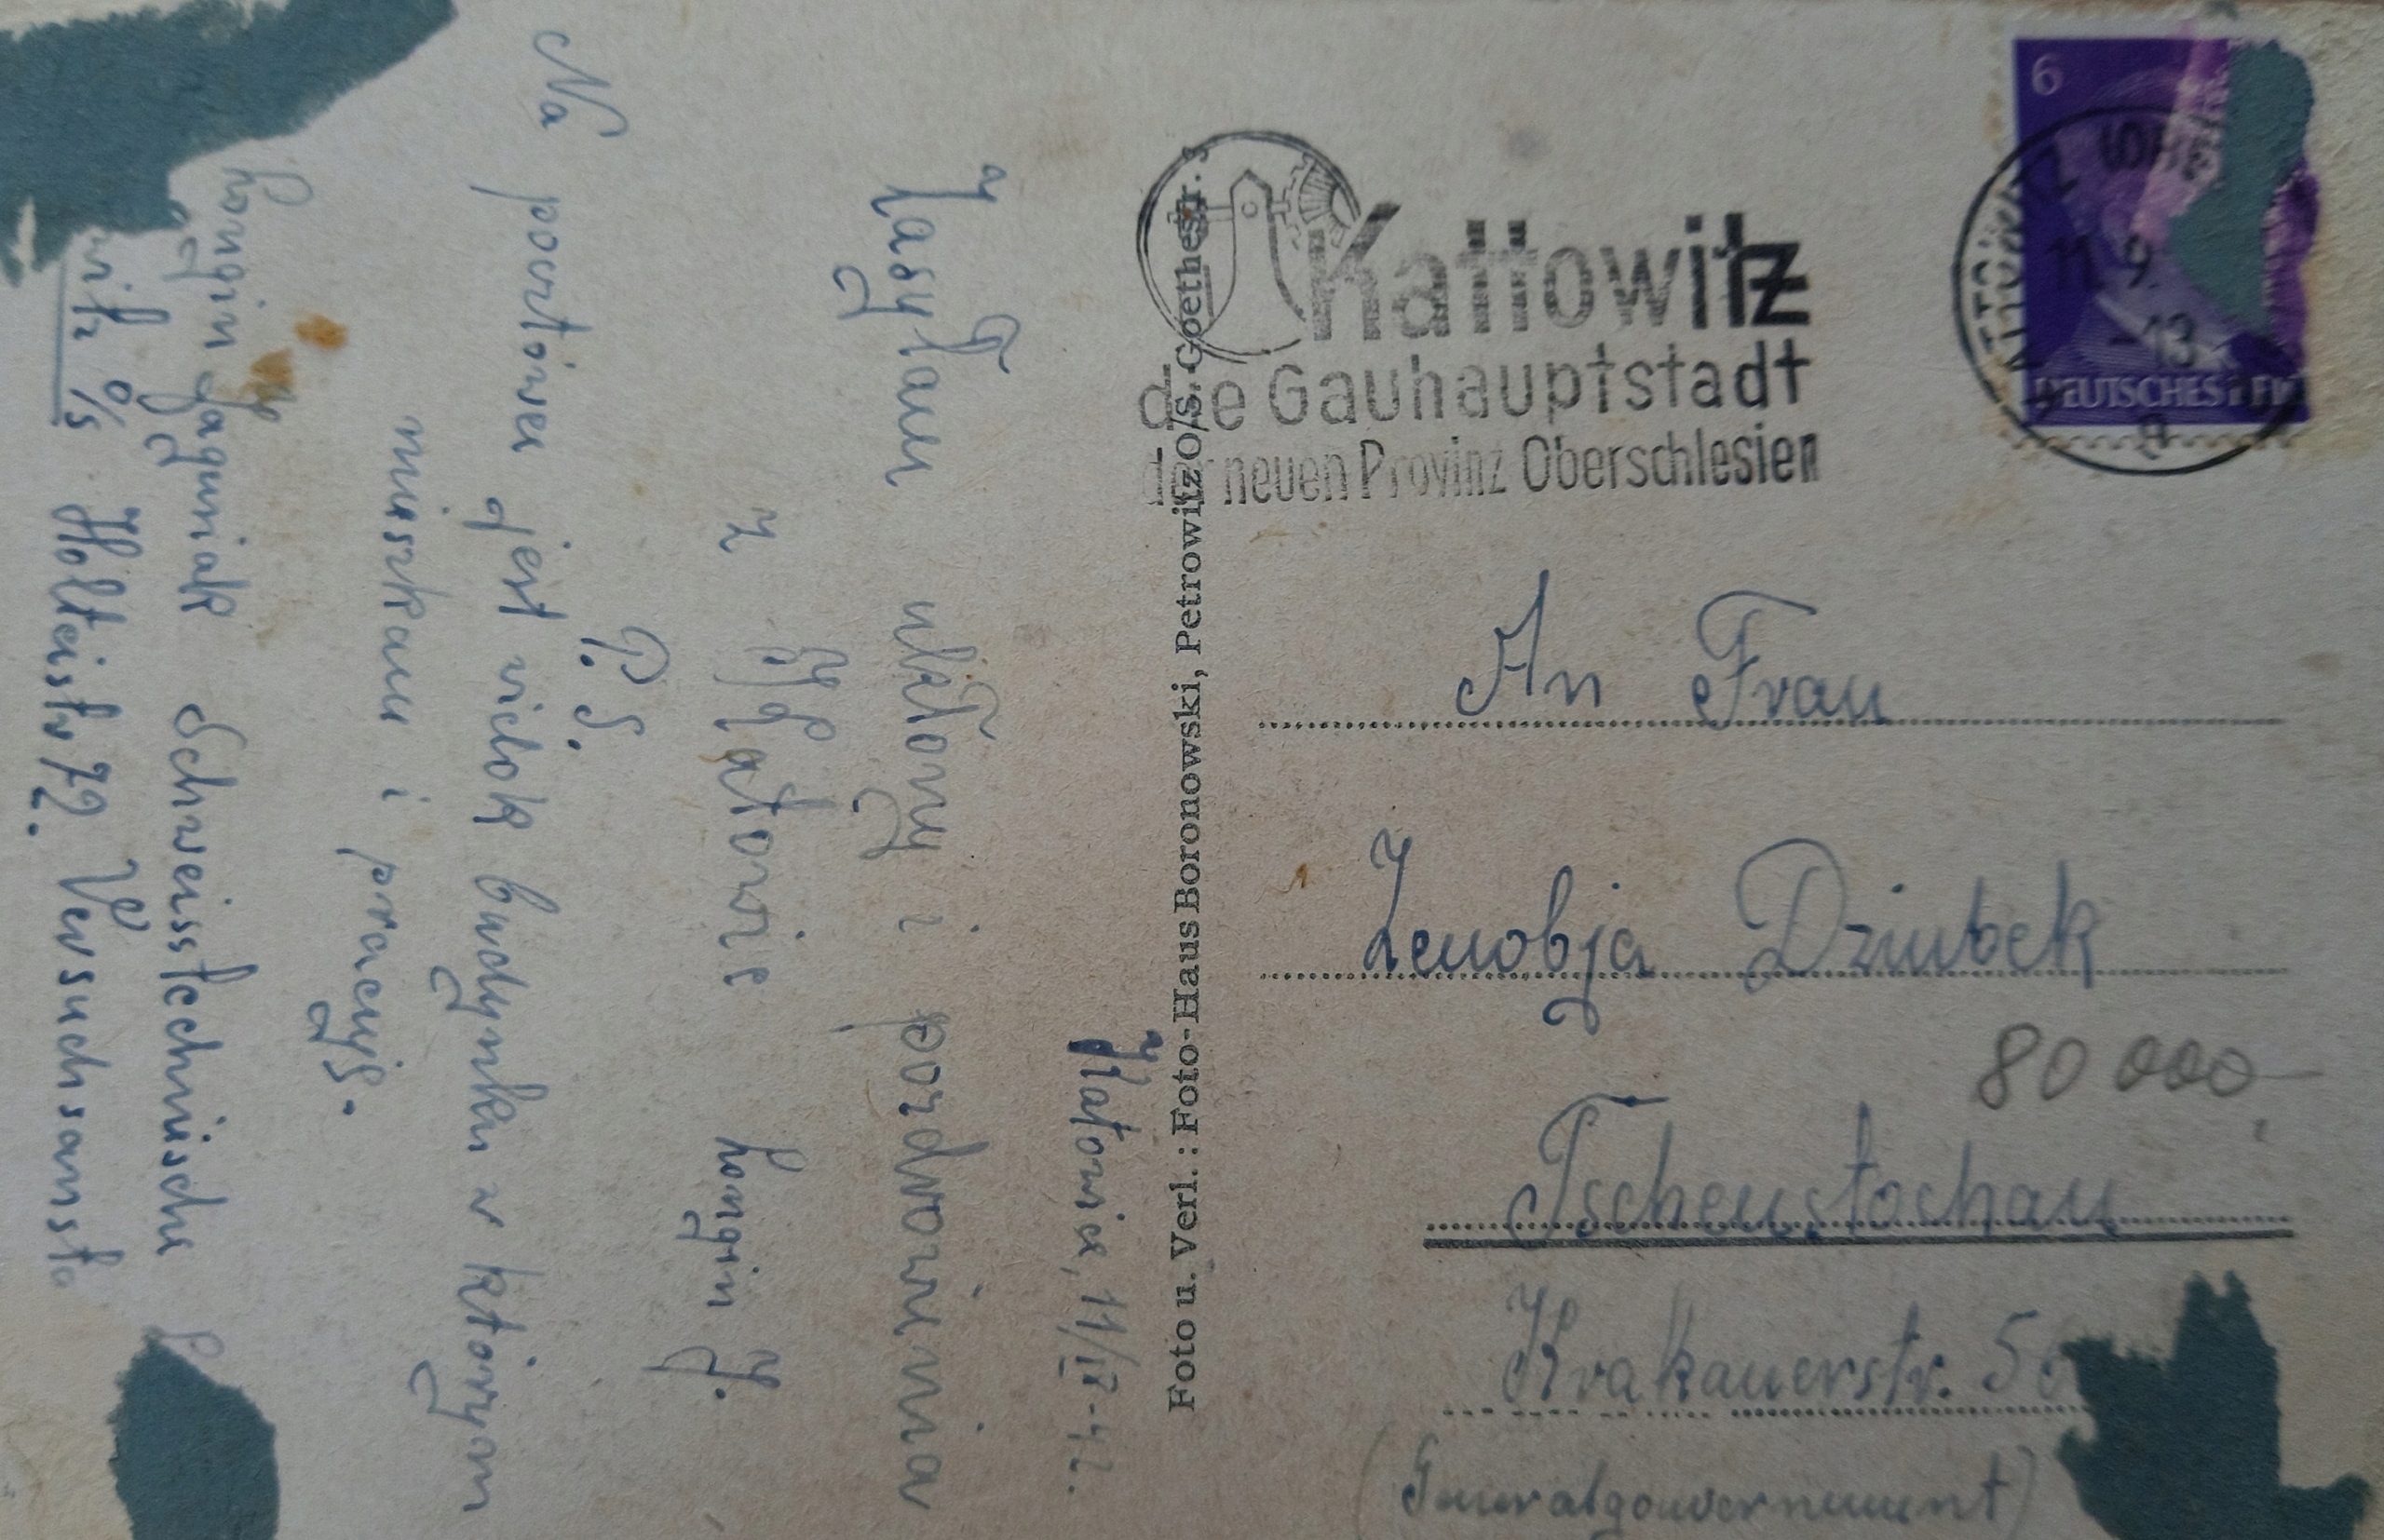 Katowice, 11/IX-42.
Zasyłam ukłony i pozdrowienia
z Katowic
Longin J.
P.S.
Na pocztówce jest widok budynku w którym
mieszkam i pracuję.
Longin Jagumiak Schweisstechnische
O/S Holteistr 72. Versuchsanst
Foto u. Verl.: Foto-Haus Boronowski, Petrowitz O/S. Goethestr. 3
Kattowitz
die Gauhauptstadt
der neuen Provinz Oberschlesien
6
DEUTSCHES REICH
11.9.
-13
a
An Frau
Zenobja Dziubek
80 000,-
Tschenstochau
Krakauerstr.
(Generalgouvernement)